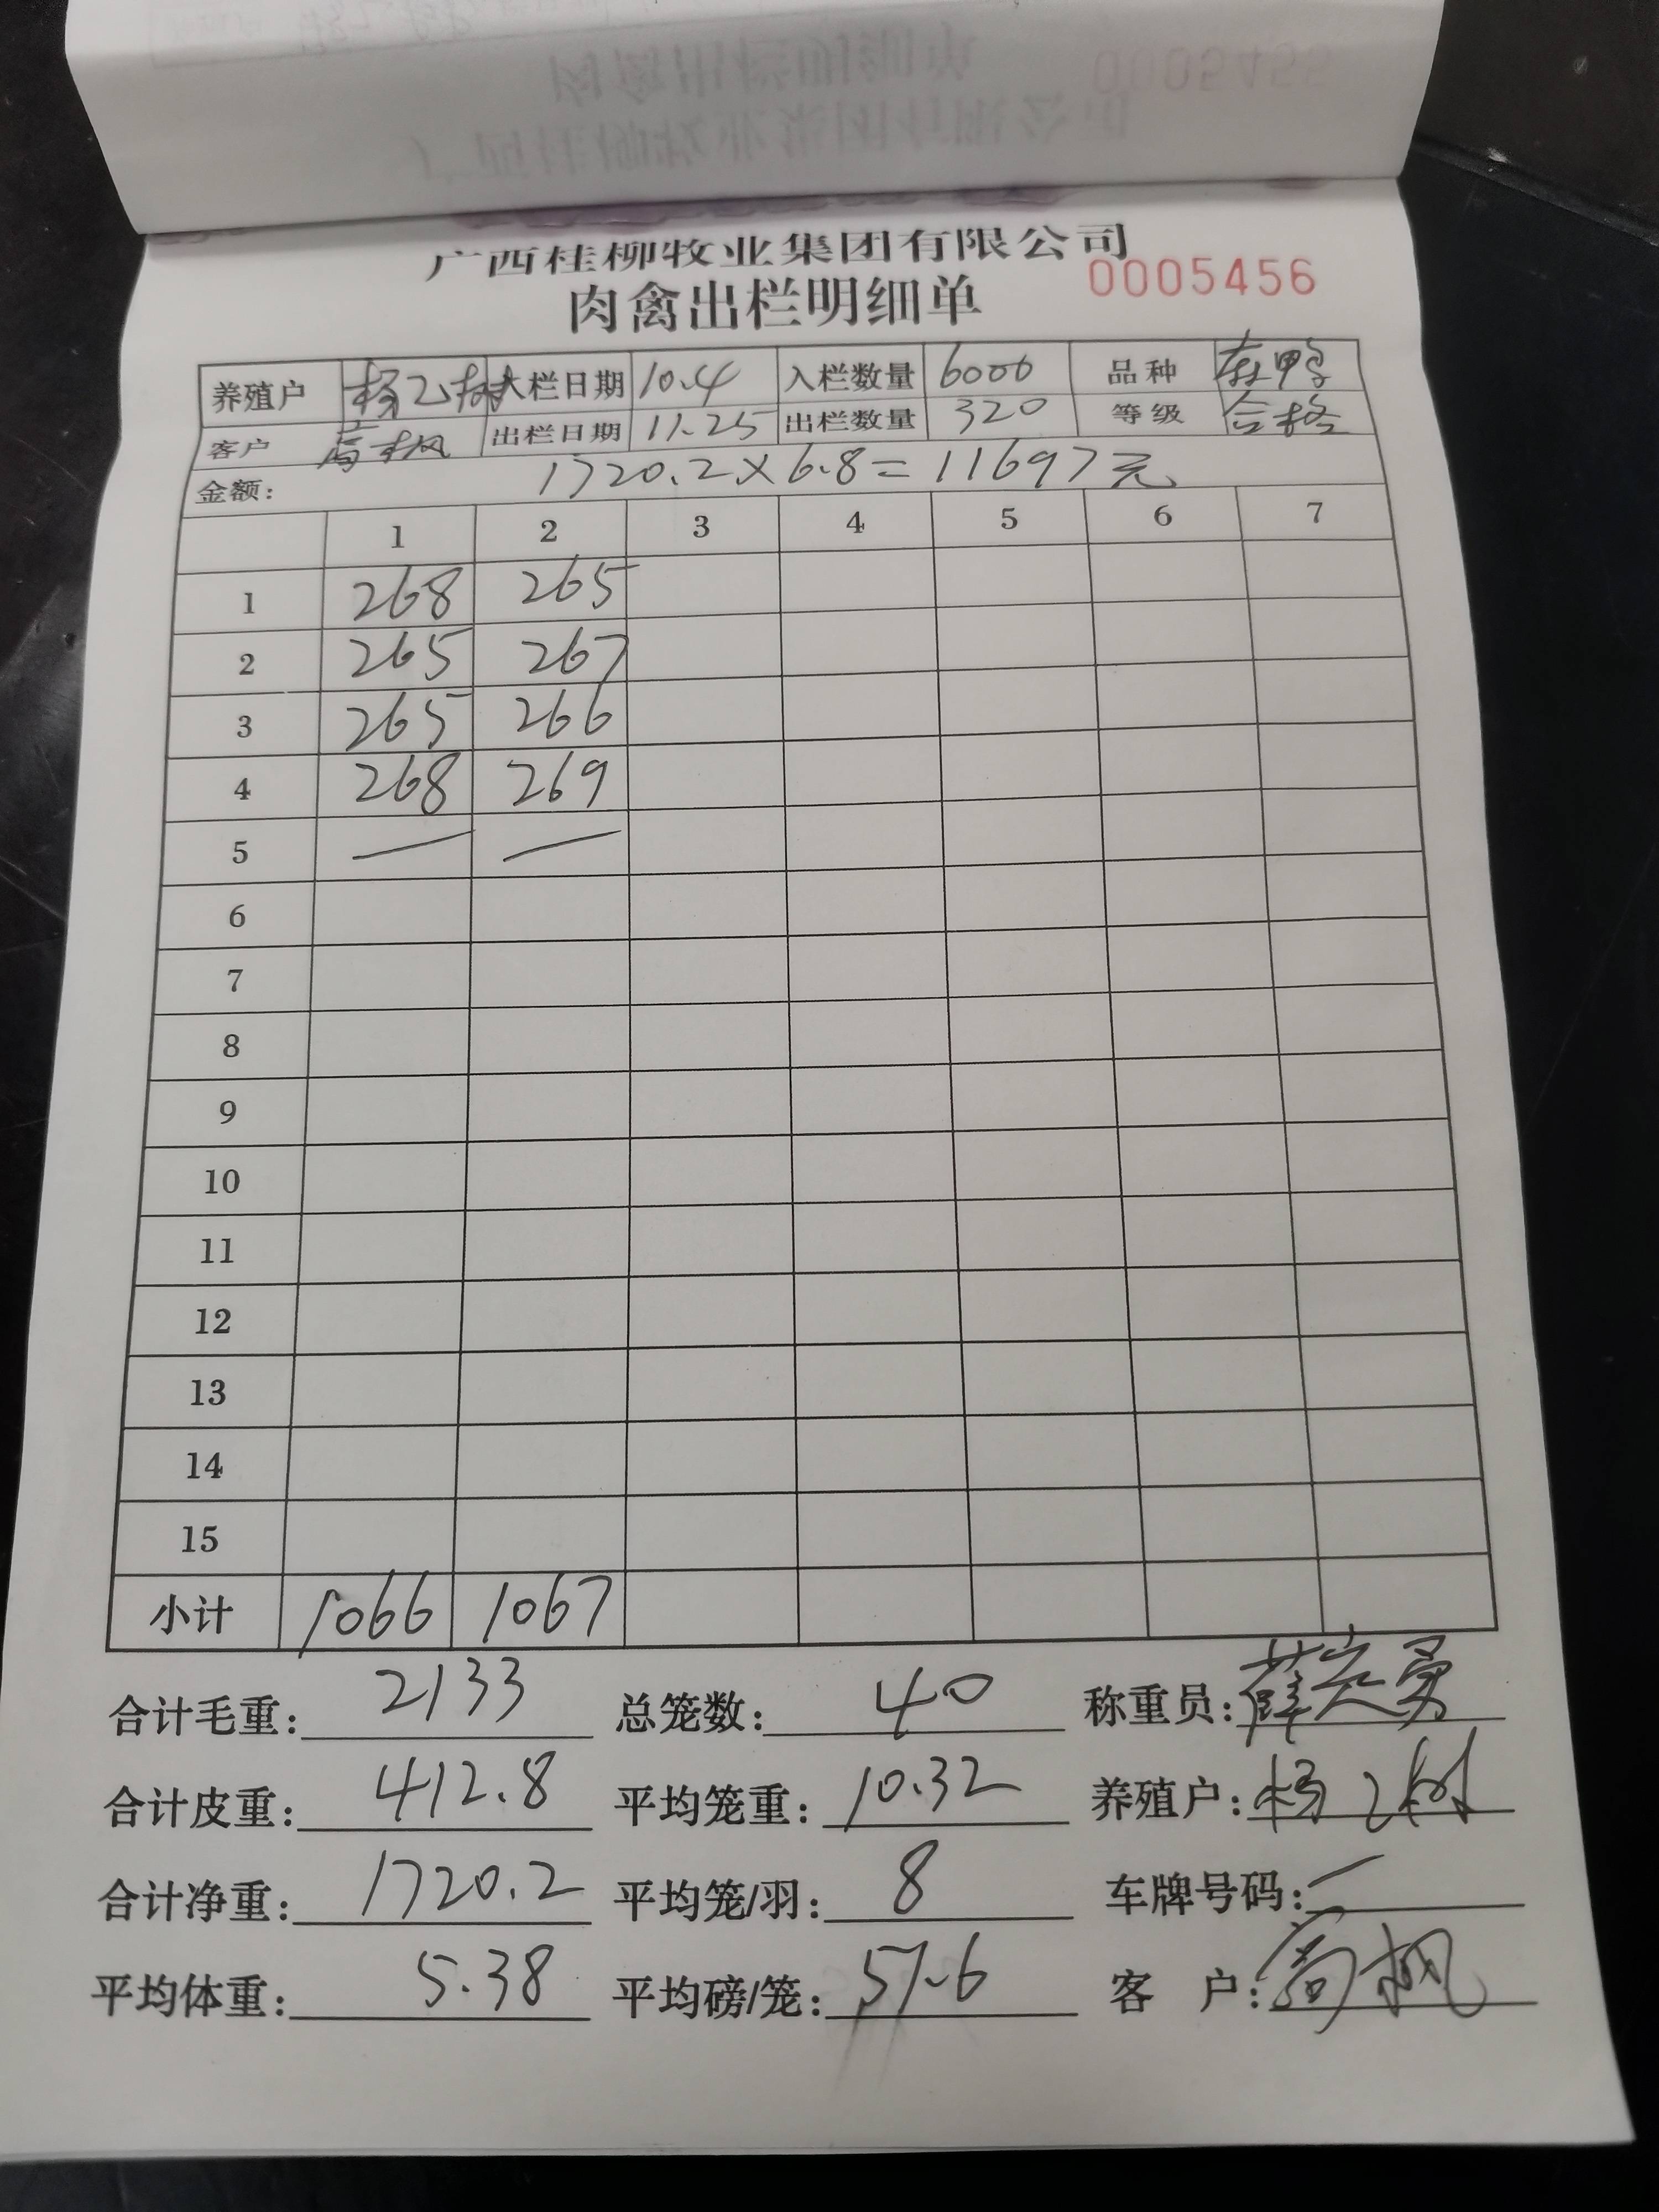 广西桂柳牧业集团有限公司
肉禽出栏明细单 0005456
养殖户 杨乙树 入栏日期 10.4 入栏数量 6000 品种
客户 高枫 出栏日期 11.25 出栏数量 320 等级 合格
金额: 1720.2×6.8=11697元
1 2 3 4 5 6 7
1 268 265
2 265 267
3 265 266
4 268 269
5 — —
6
7
8
9
10
11
12
13
14
15
小计 1066 1067
合计毛重: 2133 总笼数: 40 称重员:
合计皮重: 412.8 平均笼重: 10.32 养殖户: 杨乙树
合计净重: 1720.2 平均笼/羽: 8 车牌号码: —
平均体重: 5.38 平均磅/笼: 客 户: 高枫